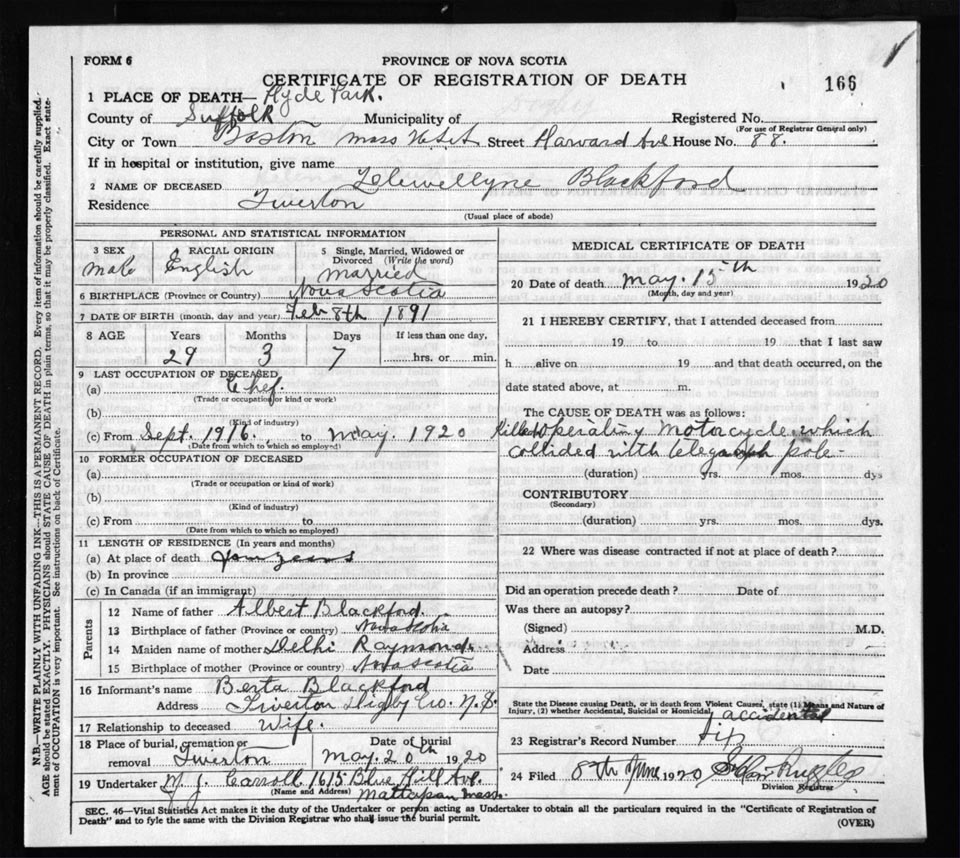 FORM 6
PROVINCE OF NOVA SCOTIA
CERTIFICATE OF REGISTRATION OF DEATH
166
1 PLACE OF DEATH— Hyde Park.
County of Suffolk Municipality of Registered No.
(For use of Registrar General only)
City or Town Boston Mass U.S.A Street Harward Ave House No. 88.
If in hospital or institution, give name
2 NAME OF DECEASED Llewellyne Blackford
Residence Tiverton
(Usual place of abode)
PERSONAL AND STATISTICAL INFORMATION
3 SEX Male
RACIAL ORIGIN English
5 Single, Married, Widowed or Divorced (Write the word) Married
6 BIRTHPLACE (Province or Country) Nova Scotia
7 DATE OF BIRTH (month, day and year) Feb 8th 1891
8 AGE Years Months Days If less than one day,
29 3 7 hrs. or min.
9 LAST OCCUPATION OF DECEASED
(a) Chef.
(Trade or occupation or kind of work)
(b)
(Kind of industry)
(c) From Sept. 1916. to May. 1920
(Date from which to which employed)
10 FORMER OCCUPATION OF DECEASED
(a)
(Trade or occupation or kind of work)
(b)
(Kind of industry)
(c) From to
(Date from which to which so employed)
11 LENGTH OF RESIDENCE (In years and months)
(a) At place of death years
(b) In province
(c) In Canada (if an immigrant)
Parents
12 Name of father Albert Blackford.
13 Birthplace of father (Province or country) Nova Scotia
14 Maiden name of mother Delhi Raymond
15 Birthplace of mother (Province or country) Nova Scotia
16 Informant's name Berta Blackford
Address Tiverton Digby Co. N.S.
17 Relationship to deceased Wife.
18 Place of burial, cremation or removal Tiverton Date of burial May 20th 1920
19 Undertaker M. J. Carroll 1615 Blue Hill Ave.
(Name and Address) Mattapan Mass.
MEDICAL CERTIFICATE OF DEATH
20 Date of death May. 15th 1920
(Month, day and year)
21 I HEREBY CERTIFY, that I attended deceased from
19 to 19 that I last saw
h alive on 19 and that death occurred, on the
date stated above, at m.
The CAUSE OF DEATH was as follows:
Killed operating motorcycle which
collided with telegraph pole-
(duration) yrs. mos. dys
CONTRIBUTORY
(Secondary)
(duration) yrs. mos. dys.
22 Where was disease contracted if not at place of death?
Did an operation precede death? Date of
Was there an autopsy?
(Signed) M.D.
Address
Date
State the Disease causing Death, or in death from Violent Causes, state (1) Means and Nature of
Injury, (2) whether Accidental, Suicidal or Homicidal.
accidental
23 Registrar's Record Number
24 Filed 8th June 1920
Division Registrar
SEC. 46—Vital Statistics Act makes it the duty of the Undertaker or person acting as Undertaker to obtain all the particulars required in the "Certificate of Registration of
Death" and to fyle the same with the Division Registrar who shall issue the burial permit.
(OVER)
N.B.—WRITE PLAINLY WITH UNFADING INK—THIS IS A PERMANENT RECORD. Every item of information should be carefully supplied.
AGE should be stated EXACTLY. PHYSICIANS should STATE CAUSE OF DEATH in plain terms, so that it may be properly classified. Exact state-
ment of OCCUPATION is very important. See instructions on back of Certificate.